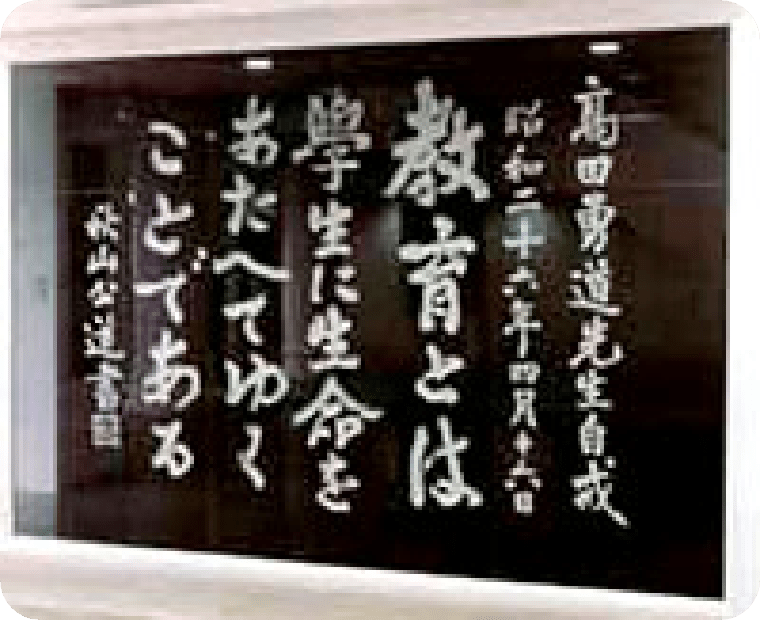 高田勇道先生自戒
昭和二十六年四月十六日
教育とは
學生に生命を
あたへてゆく
ことである
秋山公道書